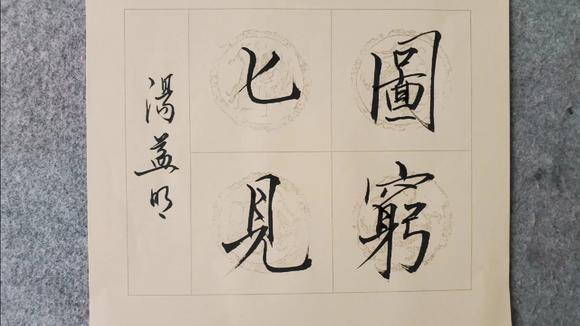 圖窮
匕見
湯益明